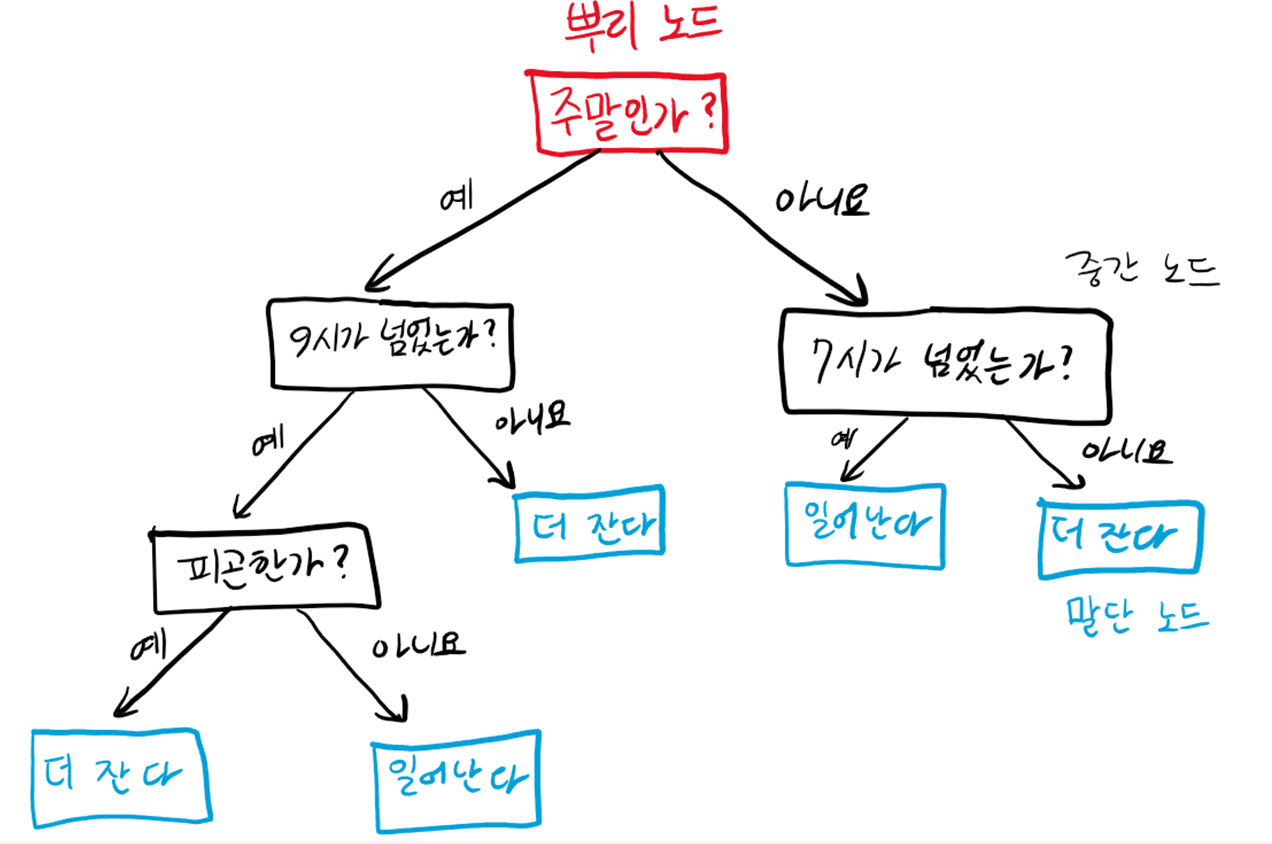 뿌리 노드
주말인가?
예
아니요
중간 노드
9시가 넘었는가?
7시가 넘었는가?
예
아니요
예
아니요
더 잔다
일어난다
더 잔다
피곤한가?
말단 노드
예
아니요
더 잔다
일어난다